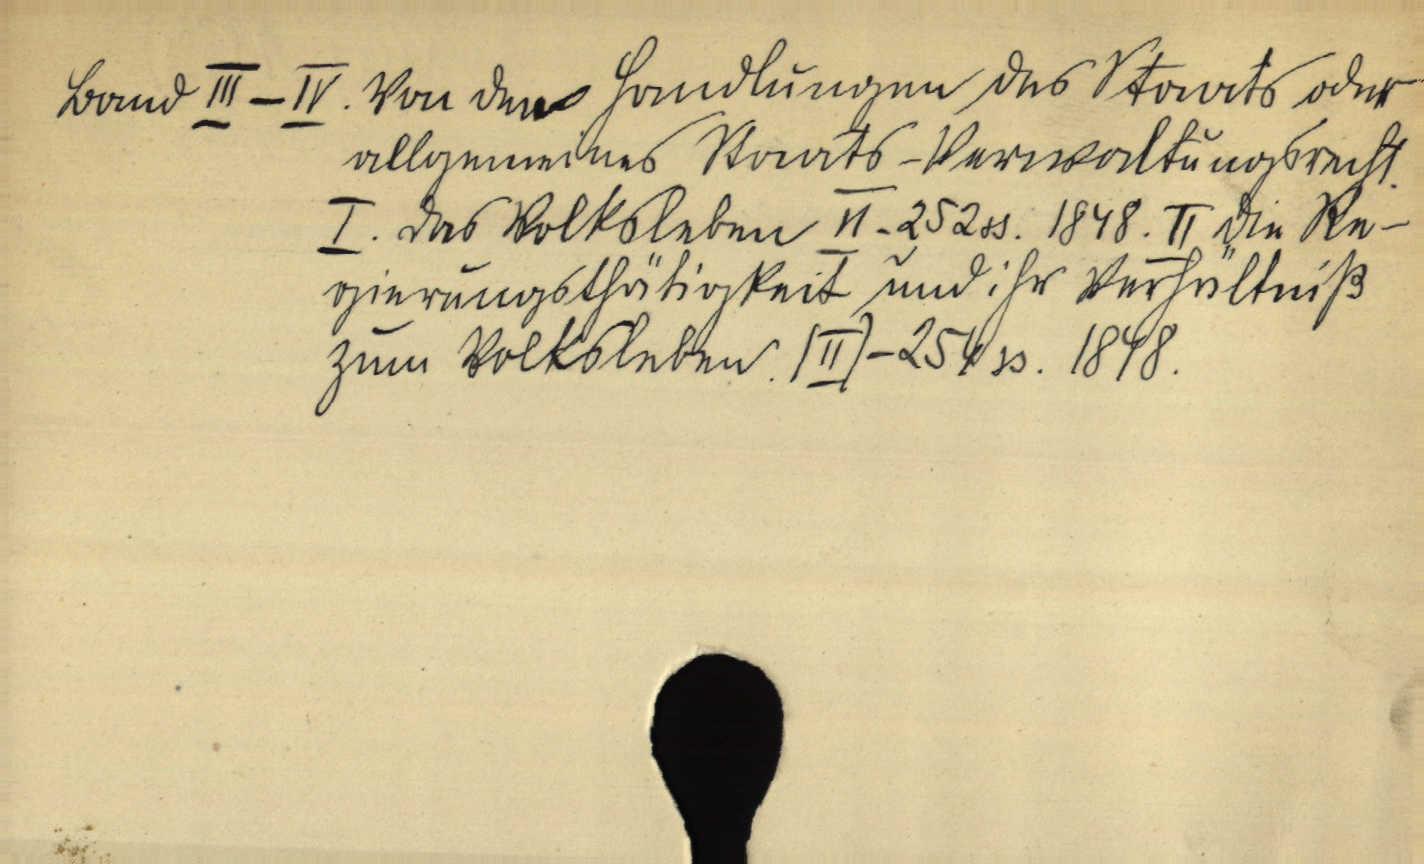 Band III – IV. Von den Handlungen des Staats oder
allgemeines Staats-Verwaltungsrecht.
I. das Volksleben VI - 252 SS. 1848. II die Re-
gierungsthätigkeit und ihr Verhältniß
zum Volksleben. (II) - 254 SS. 1848.